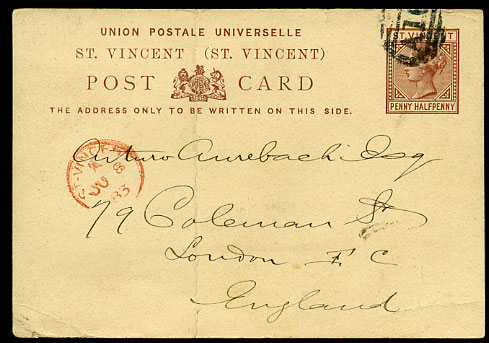 UNION POSTALE UNIVERSELLE
ST. VINCENT (ST. VINCENT)
POST CARD
THE ADDRESS ONLY TO BE WRITTEN ON THIS SIDE.
ST. VINCENT
PENNY HALFPENNY
ST. VINCENT
A
JU 8
83
Arturo Aurebach Esq
79 Coleman St
London E C
England